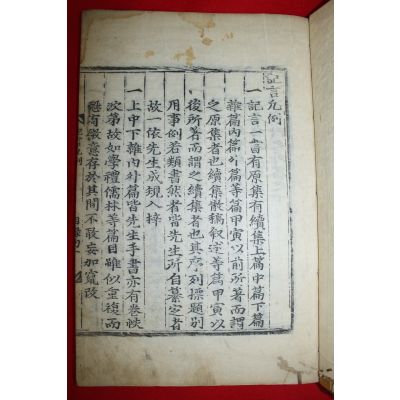 記言凡例
一記言一書有原集有續集上篇中篇下篇
雜篇內篇外篇等篇甲寅以前所著而謂
之原集者也續集散稿敍述等篇甲寅以
後所著而謂之續集者也其序列標題別
用事例若類書然者皆先生所自纂定者
故一依先生成規入梓
一上中下雜內外篇皆先生手書亦有卷帙
次第故如學禮儒林等篇目雖似重複而
懸有微意存於其間不敢妄加竄改